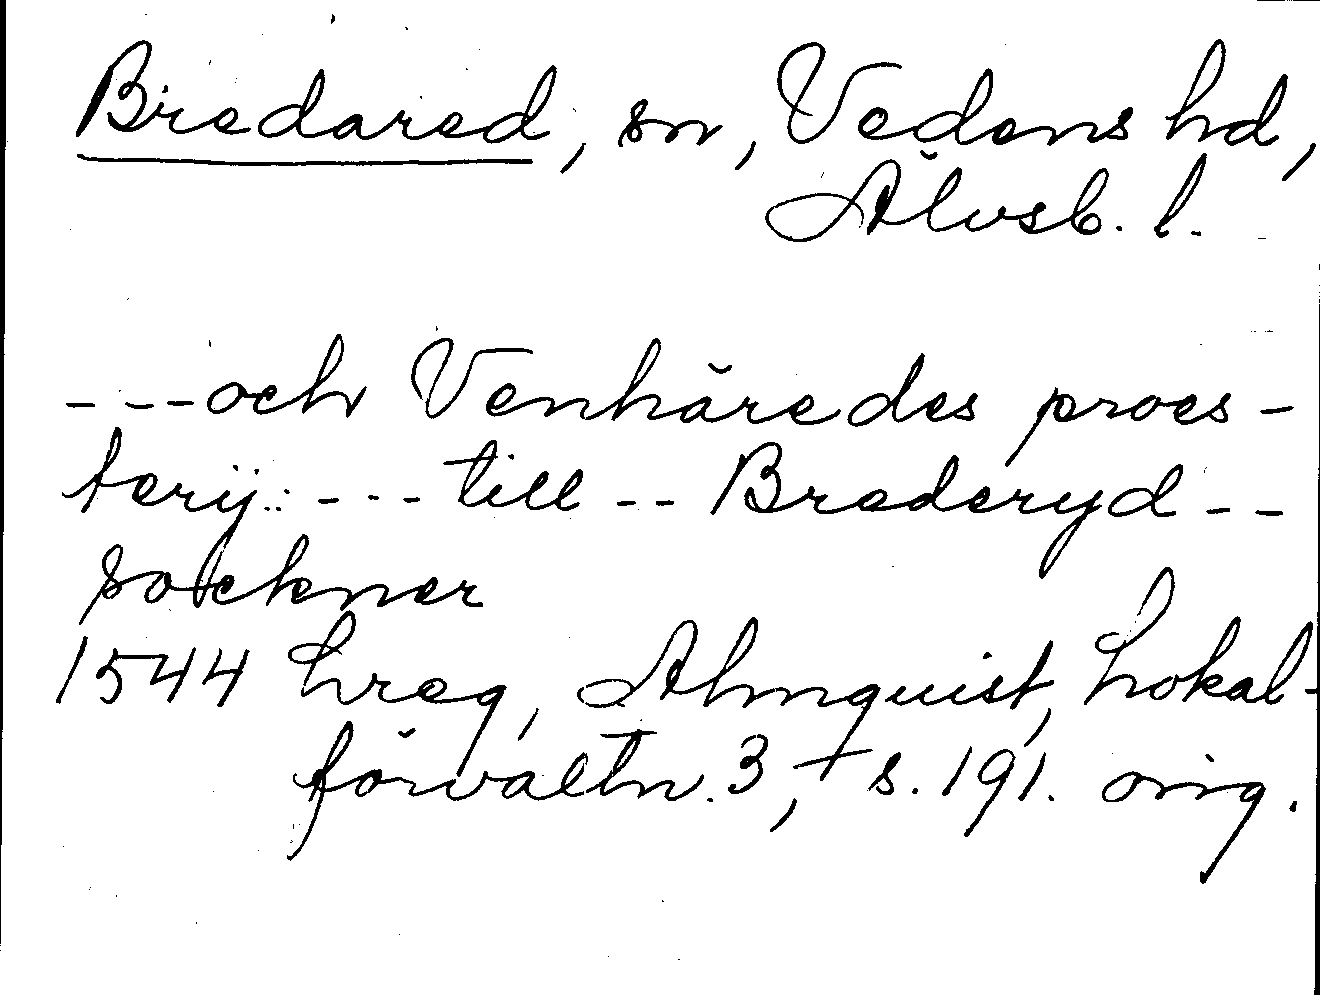 Bredared, sn, Vedens hd,
Älvsb. l.
---och Venhäredes proes-
terij: --- till -- Brederyd --
sockner
1544 Lreg, Almquist, Lokal-
förvaltn. 3, + s. 191. orig.